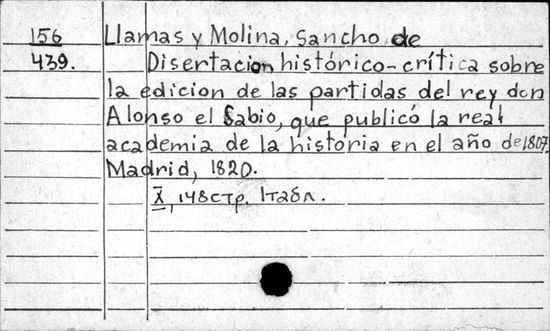 156 Llamas y Molina, Sancho de
439. Disertacion histórico-crítica sobre
la edicion de las partidas del rey don
Alonso el Sabio, que publicó la real
academia de la historia en el año de 1807.
Madrid, 1820.
X, 148стр. 1табл.